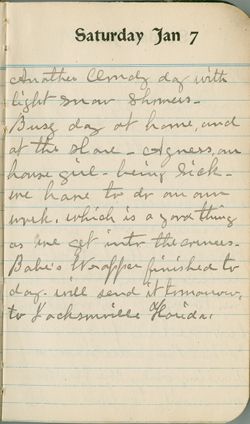 Saturday Jan 7
Another Cloudy day with
light snow showers -
Busy day at home, and
at the store - Agness, our
house girl - being Sick -
we have to do our own
work, which is a good thing
as we get into the
Babe's Wrapper finished to
day - will send it tomorrow,
to Jacksonville Florida.